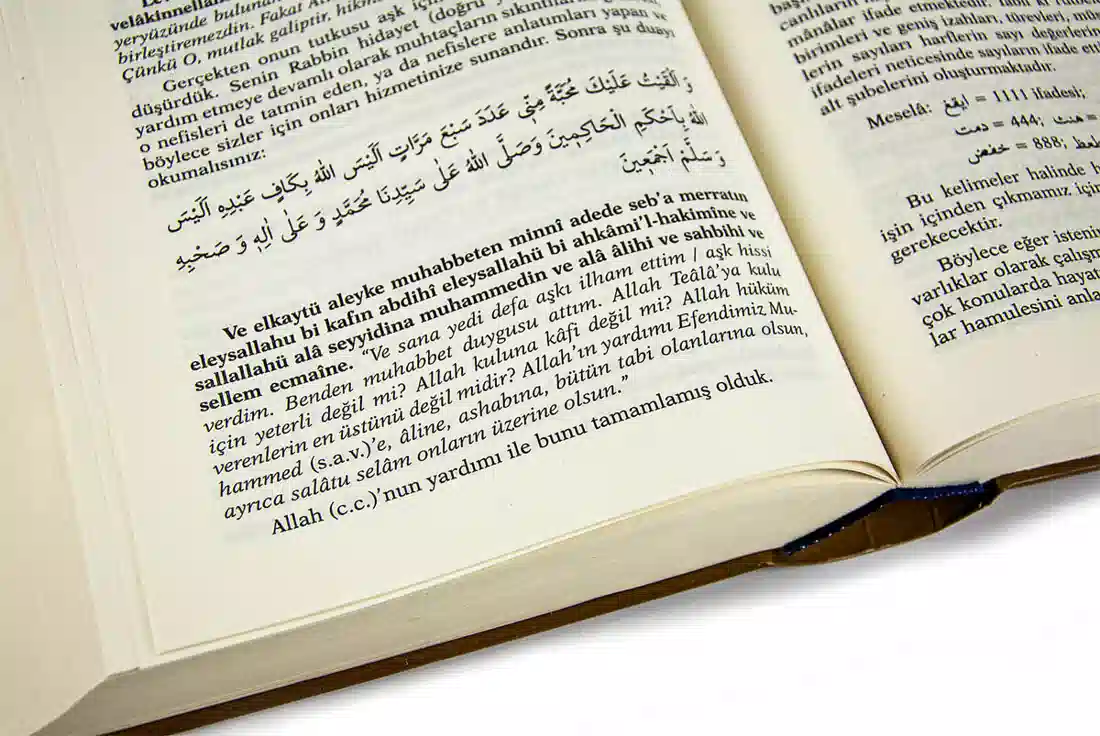 velâkinnellah
yeryüzünde bulunan
birleştiremezdin. Fakat
Çünkü O, mutlak galiptir,
Gerçekten onun tutkusu aşk için
düşürdük. Senin Rabbin hidayet (doğru
yardım etmeye devamlı olarak muhtaçların
o nefisleri de tatmin eden, ya da nefislere anlatımları yapan ve
böylece sizler için onları hizmetinize sunandır. Sonra şu duayı
okumalısınız:
وَ اَلْقَيْتُ عَلَيْكَ مَحَبَّةً مِنّ۪ى عَدَدَ سَبْعَ مَرَّاتٍ اَلَيْسَ اللهُ بِكَافٍ عَبْدِهِ اَلَيْسَ
اللهُ بِاَحْكَمِ الْحَاكِم۪ينَ وَصَلَّى اللهُ عَلٰى سَيِّدِنَا مُحَمَّدٍ وَ عَلٰى اٰلِه۪ وَ صَحْبِه۪
وَ سَلَّمْ اَجْمَع۪ينَ
Ve elkaytü aleyke muhabbeten minnî adede seb’a merratın
eleysallahu bi kafın abdihî eleysallahü bi ahkâmi’l-hakimîne ve
sallallahü alâ seyyidina muhammedin ve alâ âlihi ve sahbihi ve
sellem ecmaîne. “Ve sana yedi defa aşkı ilham ettim / aşk hissi
verdim. Benden muhabbet duygusu attım. Allah Teâlâ’ya kulu
için yeterli değil mi? Allah kuluna kâfi değil mi? Allah hüküm
verenlerin en üstünü değil midir? Allah’ın yardımı Efendimiz Mu-
hammed (s.a.v.)’e, âline, ashabına, bütün tabi olanlarına olsun,
ayrıca salâtu selâm onların üzerine olsun.”
Allah (c.c.)’nun yardımı ile bunu tamamlamış olduk.
canlıların
mânâlar ifade etmektedir.
birimleri ve geniş izahları, türevleri,
lerin sayıları harflerin sayı değerlerin
ifadeleri neticesinde sayıların ifade
alt şubelerini oluşturmaktadır.
Meselâ: ايقغ = 1111 ifadesi;
دمت = 444; هنث =
خفض = 888;
Bu kelimeler halinde
işin içinden çıkmamız için
gerekecektir.
Böylece eğer istenin
varlıklar olarak çalışm
çok konularda hayat
lar hamulesini anla